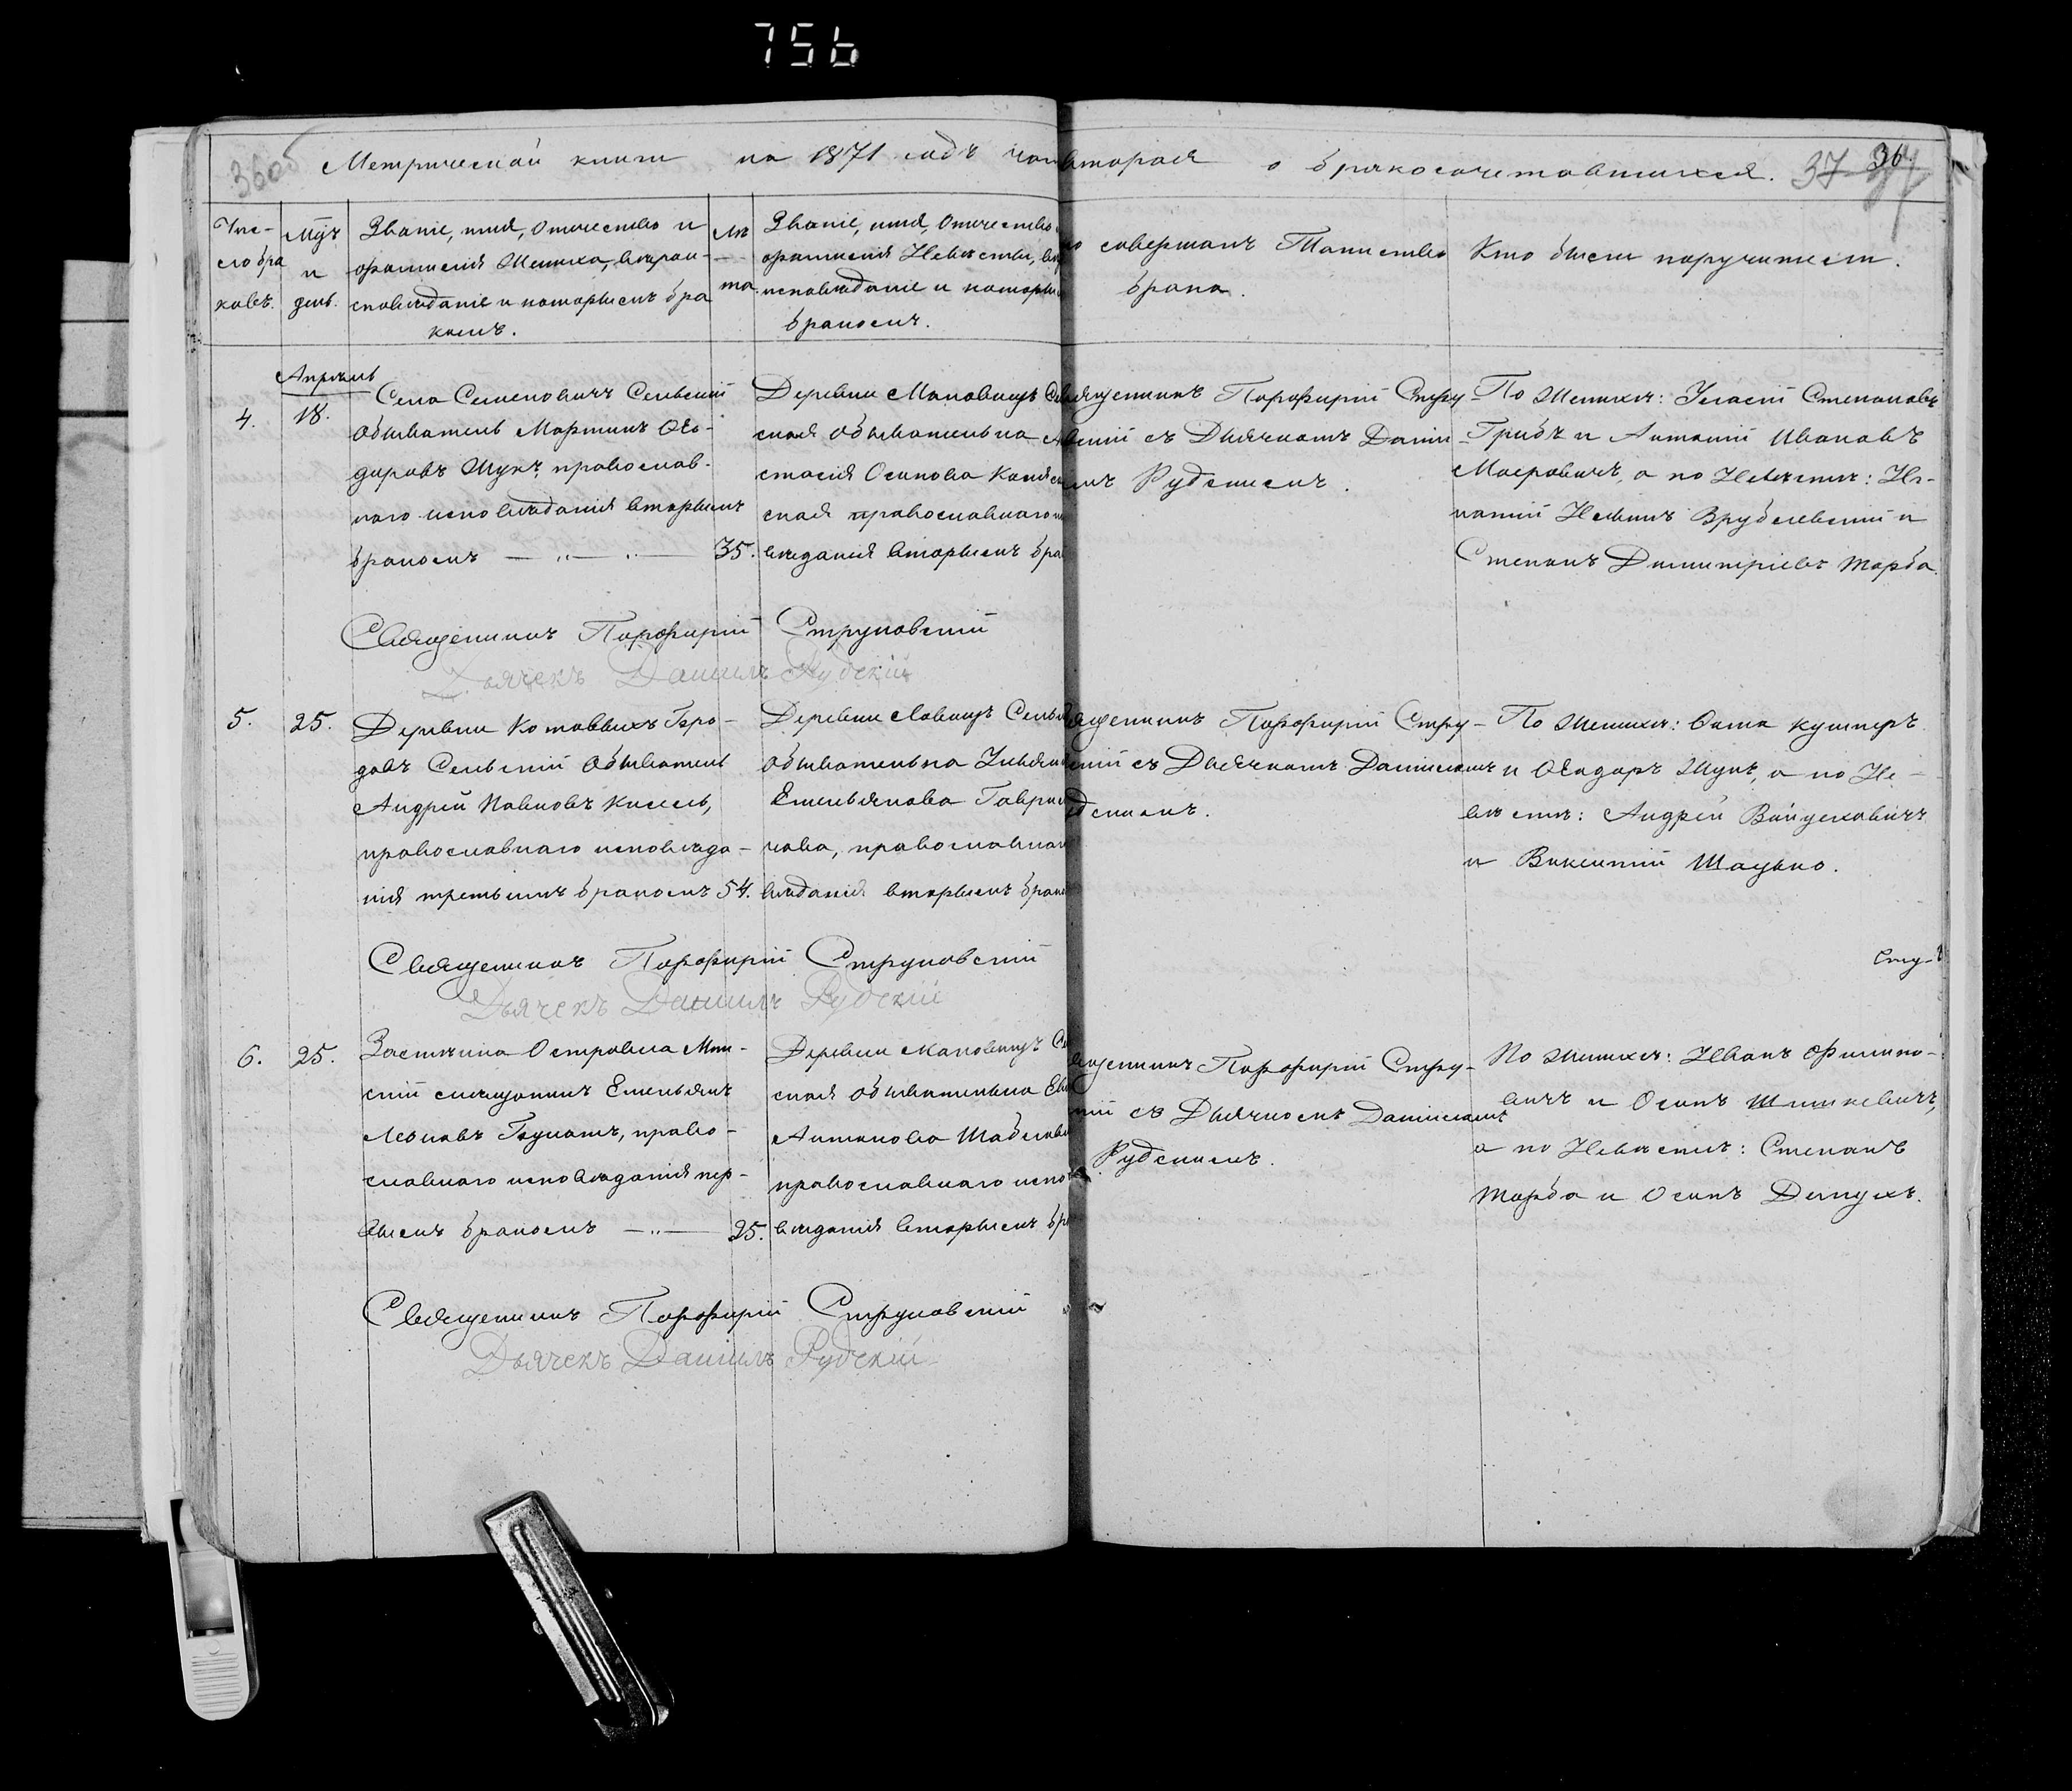 756
36об Метрической книги на 1871 годъ часть вторая о бракосочетавшихся. 37 36
Чис-
ло бра
ковъ.
Мц̃ъ
и
день.
Званіе, имя, отчество и
фамилія Жениха, вѣрои-
сповѣданіе и которымъ бра
комъ.
Лѣ
та.
Званіе, имя, отчество
фамилія Невѣсты, вѣр
исповѣданіе и которы
бракомъ.
совершалъ Таинство
брака.
Кто были поручители.
4.
Апрѣль
18.
Села Семеновичъ Сельскій
Обыватель Мартинъ Ѳео-
доровъ Жукъ, православ-
наго исповѣданія вторымъ
бракомъ 35.
Деревни Маковищъ Се
ская Обывателька А
стасія Осипова
ская православнаго
вѣданія вторымъ бра
ященникъ Порфирій Стру-
вскій съ Дьячкомъ Даніи-
омъ Рудскимъ.
По Женихѣ: Игнатій Степановъ
Грибъ и Антоній Ивановъ
а по Невѣстѣ: Иг-
натій Врублевскій и
Степанъ Димитріевъ Торба.
Священникъ Порфирій Струковскій
Дьячекъ Даніилъ Рудскій
5.
25.
Деревни Горо-
довъ Сельскій Обыватель
Андрей Павловъ Кисель,
православнаго исповѣда-
нія третьимъ бракомъ 54.
Деревни Ловищъ Сель
Обывателька Ульян
Емельянова Гаври
кова, православна
вѣданія вторымъ брак
ященникъ Порфирій Стру-
скій съ Дьячкомъ Даніиломъ
дскимъ.
По Женихѣ: Ѳома Кушнеръ
и Ѳеодоръ Жукъ, а по Не-
вѣстѣ: Андрей Войцеховичъ
и Викентій Шацько.
Священникъ Порфирій Струковскій
Дьячекъ Даніилъ Рудскій
6.
25.
Застѣнка Островка Мин-
скій мѣщанинъ Емельянъ
Леоновъ православ-
славнаго исповѣданія пер-
вымъ бракомъ 25.
Деревни Маковищъ Се
ская обывателька Ев
Антонова
православнаго испо
вѣданія вторымъ бр
ященникъ Порфирій Стру-
скій съ Дьячкомъ Даніиломъ
Рудскимъ.
По Женихѣ: Иванъ Филипо-
вичъ и Осипъ Шишкевичъ,
а по Невѣстѣ: Степанъ
Торба и Осипъ
Священникъ Порфирій Струковскій
Дьячекъ Даніилъ Рудскій